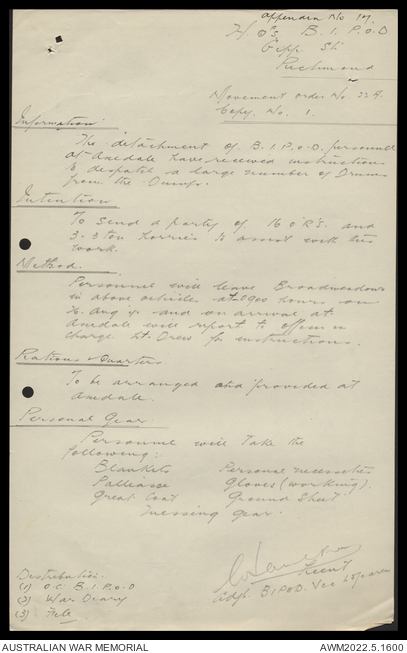 Appendix No 17.
H.Q's B.I.P.O.D
Gipp St
Richmond
Movement order No. 229.
Copy No. 1.
Information
The detachment of B.I.P.O.D. personnel
at have received instructions
to despatch a large number of Drums
from the Dumps.
Intention
To send a party of 16 O'R's. and
3-3 ton Lorries to assist with this
work.
Method.
Personnel will leave Broadmeadows
in above vehicles at 0900 hours on
Aug and on arrival at
will report to officer in
charge Lt. Drew for instructions.
Rations & Quarters
To be arranged and provided at
Personal Gear.
Personnel will take the
following:
Blankets Personal necessities
Palliasse Gloves (working).
Great Coat Ground Sheet
Messing gear.
Distribution.
(1) O.C. B.I.P.O.D
(2) War Diary
(3) File
Lieut
Adjt. B.I.P.O.D. Vic
AUSTRALIAN WAR MEMORIAL
AWM2022.5.1600